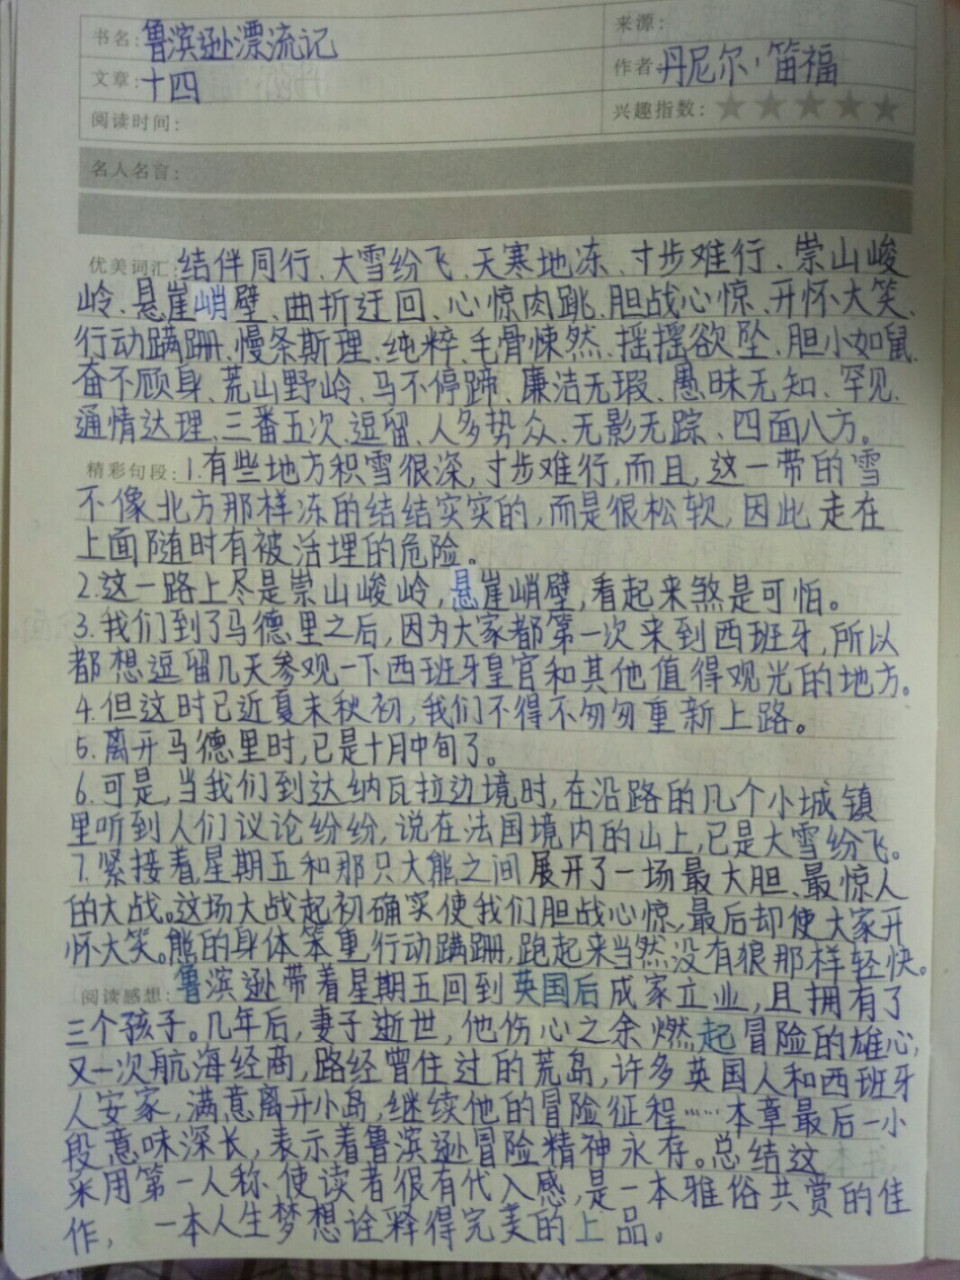 书名:鲁滨逊漂流记
来源:
文章:十四
作者:丹尼尔·笛福
阅读时间:
兴趣指数:★★★★★
名人名言:
优美词汇:结伴同行、大雪纷飞、天寒地冻、寸步难行、崇山峻
岭、悬崖峭壁、曲折迂回、心惊肉跳、胆战心惊、开怀大笑、
行动蹒跚、慢条斯理、纯粹、毛骨悚然、摇摇欲坠、胆小如鼠、
奋不顾身、荒山野岭、马不停蹄、廉洁无瑕、愚昧无知、罕见、
通情达理、三番五次、逗留、人多势众、无影无踪、四面八方。
精彩句段:1.有些地方积雪很深,寸步难行,而且,这一带的雪
不像北方那样冻的结结实实的,而是很松软,因此走在
上面随时有被活埋的危险。
2.这一路上尽是崇山峻岭,悬崖峭壁,看起来煞是可怕。
3.我们到了马德里之后,因为大家都第一次来到西班牙,所以
都想逗留几天参观一下西班牙皇宫和其他值得观光的地方。
4.但这时已近夏末秋初,我们不得不匆匆重新上路。
5.离开马德里时,已是十月中旬了。
6.可是,当我们到达纳瓦拉边境时,在沿路的几个小城镇
里听到人们议论纷纷,说在法国境内的山上,已是大雪纷飞。
7.紧接着星期五和那只大熊之间展开了一场最大胆、最惊人
的大战。这场大战起初确实使我们胆战心惊,最后却使大家开
怀大笑。熊的身体笨重,行动蹒跚,跑起来当然没有狼那样轻快。
阅读感想:鲁滨逊带着星期五回到英国后成家立业,且拥有了
三个孩子。几年后,妻子逝世,他伤心之余燃起冒险的雄心,
又一次航海经商,路经曾住过的荒岛,许多英国人和西班牙
人安家,满意离开小岛,继续他的冒险征程……本章最后一小
段意味深长,表示着鲁滨逊冒险精神永存。总结这
采用第一人称,使读者很有代入感,是一本雅俗共赏的佳
作, 一本人生梦想诠释得完美的上品。